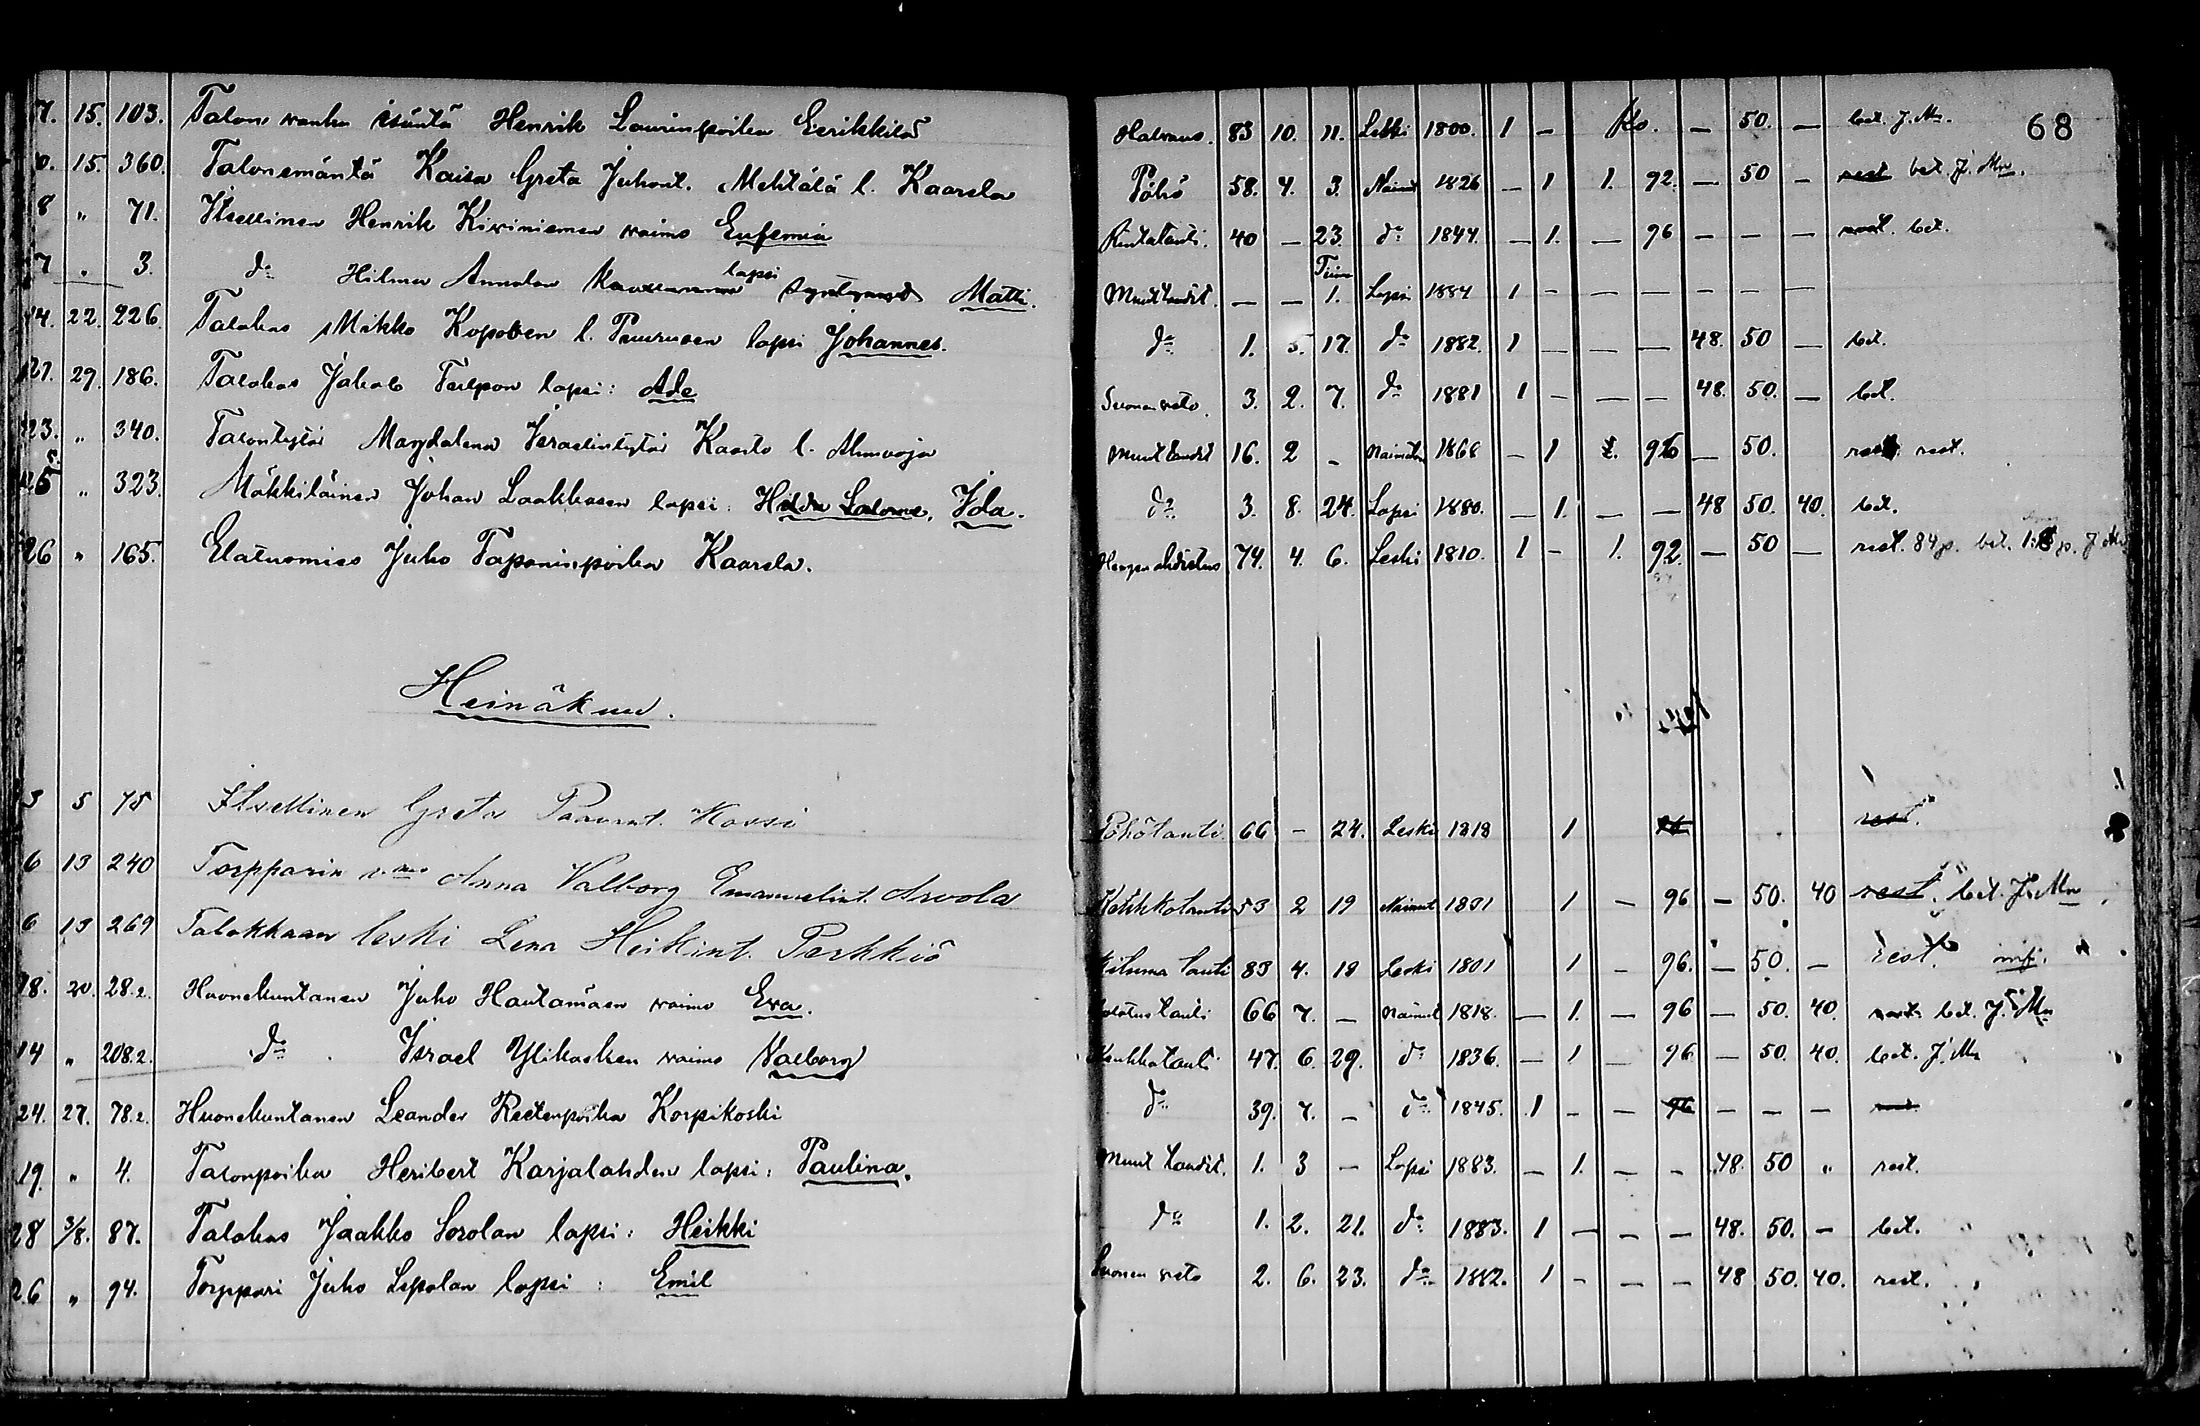 68
7. 15. 103. Talon vanha isäntä Henrik Laurinpoika Eerikkilä Halvaus. 83 10. 11. Leski 1800. 1 — — 50. — bet. J. Mn.
0. 15. 360. Talonemäntä Kaisa Greta Juhont. Mehtälä l. Kaarela Pöhö 58. 4. 3. Nainut 1826 — 1 1. 92. — 50 — rest bet. J. Mn.
8 " 71. Itsellinen Henrik Kiviniemen vaimo Eufemia Rintatauti. 40 — 23. do 1844. — 1. — 96 — — — rest. bet.
7 " 3. do Hilma Annalan lapsi Matti. Muut taudit. — — 1. Tiima Lapsi 1884 1 — — — — — —
14. 22. 226. Talokas Mikko Kopoten l. Puurusen lapsi Johannes. do 1. 5. 17. do 1882. 1 — — — 48. 50 — bet.
27. 29. 186. Talokas Jakob Tulpon lapsi: Ade Suonenveto. 3. 2. 7. do 1881 1 — — — 48. 50. — bet.
23. " 340. Talontytär Magdalena Israelintytär Kaarto l. Ahmaoja Muut taudit 16. 2 — Naimaton 1868 — 1 1. 96 — 50. rest.
25 " 323. Mökkiläinen Johan Laakkosen lapsi: Hilda Salome, Ida. do 3. 8. 24. Lapsi 1880. — 1. — — 48 50. 40. bet.
26 " 165. Elatusmies Juho Tapaninpoika Kaarela. Hengenahdistus 74. 4. 6. Leski 1810. 1 — 1. 92. — 50 — rest. 84 p. bet.
Heinäkuu.
3 5 75 Itsellinen Greta Paavant. Kassi Pöhötauti 66 — 24. Leski 1818 1 rest.
6 13 240 Torpparin vmo Anna Valborg Emanuelint. Arvola 53 2 19 Nainut 1831 1 — 96 — 50. 40 rest. bet. J. Mn
6 13 269 Talokkaan leski Lena Heikint. Perkkiö 83 4. 18 Leski 1801 1 — 96. — 50. — rest.
18. 20. 28.2. Huonekuntanen Juho Hautamäen vaimo Eva. 66 7. — Nainut 1818. — 1. — 96 — 50. 40. rest. bet. J. Mn
14 " 208.2. do Israel Ylikosken vaimo Valborg Keuhkotauti 47. 6. 29. do 1836. — 1 — 96 — 50. 40. bet. J. Mn
24. 27. 78.2. Huonekuntanen Leander Reetenpoika Korpikoski do 39. 7. — do 1845. 1 — — 96 — — — rest
19. " 4. Talonpoika Heribert Karjalahden lapsi: Paulina. Muut taudit. 1. 3 — Lapsi 1883. — 1. — — 48. 50 " rest.
28 3/8. 87. Talokas Jaakko Sorolan lapsi: Heikki do 1. 2. 21. do 1883. 1 — — — 48. 50. — bet.
26 " 94. Torppari Juho Lepolan lapsi: Emil Suonen veto 2. 6. 23. do 1882. 1 — — — 48 50. 40. rest.